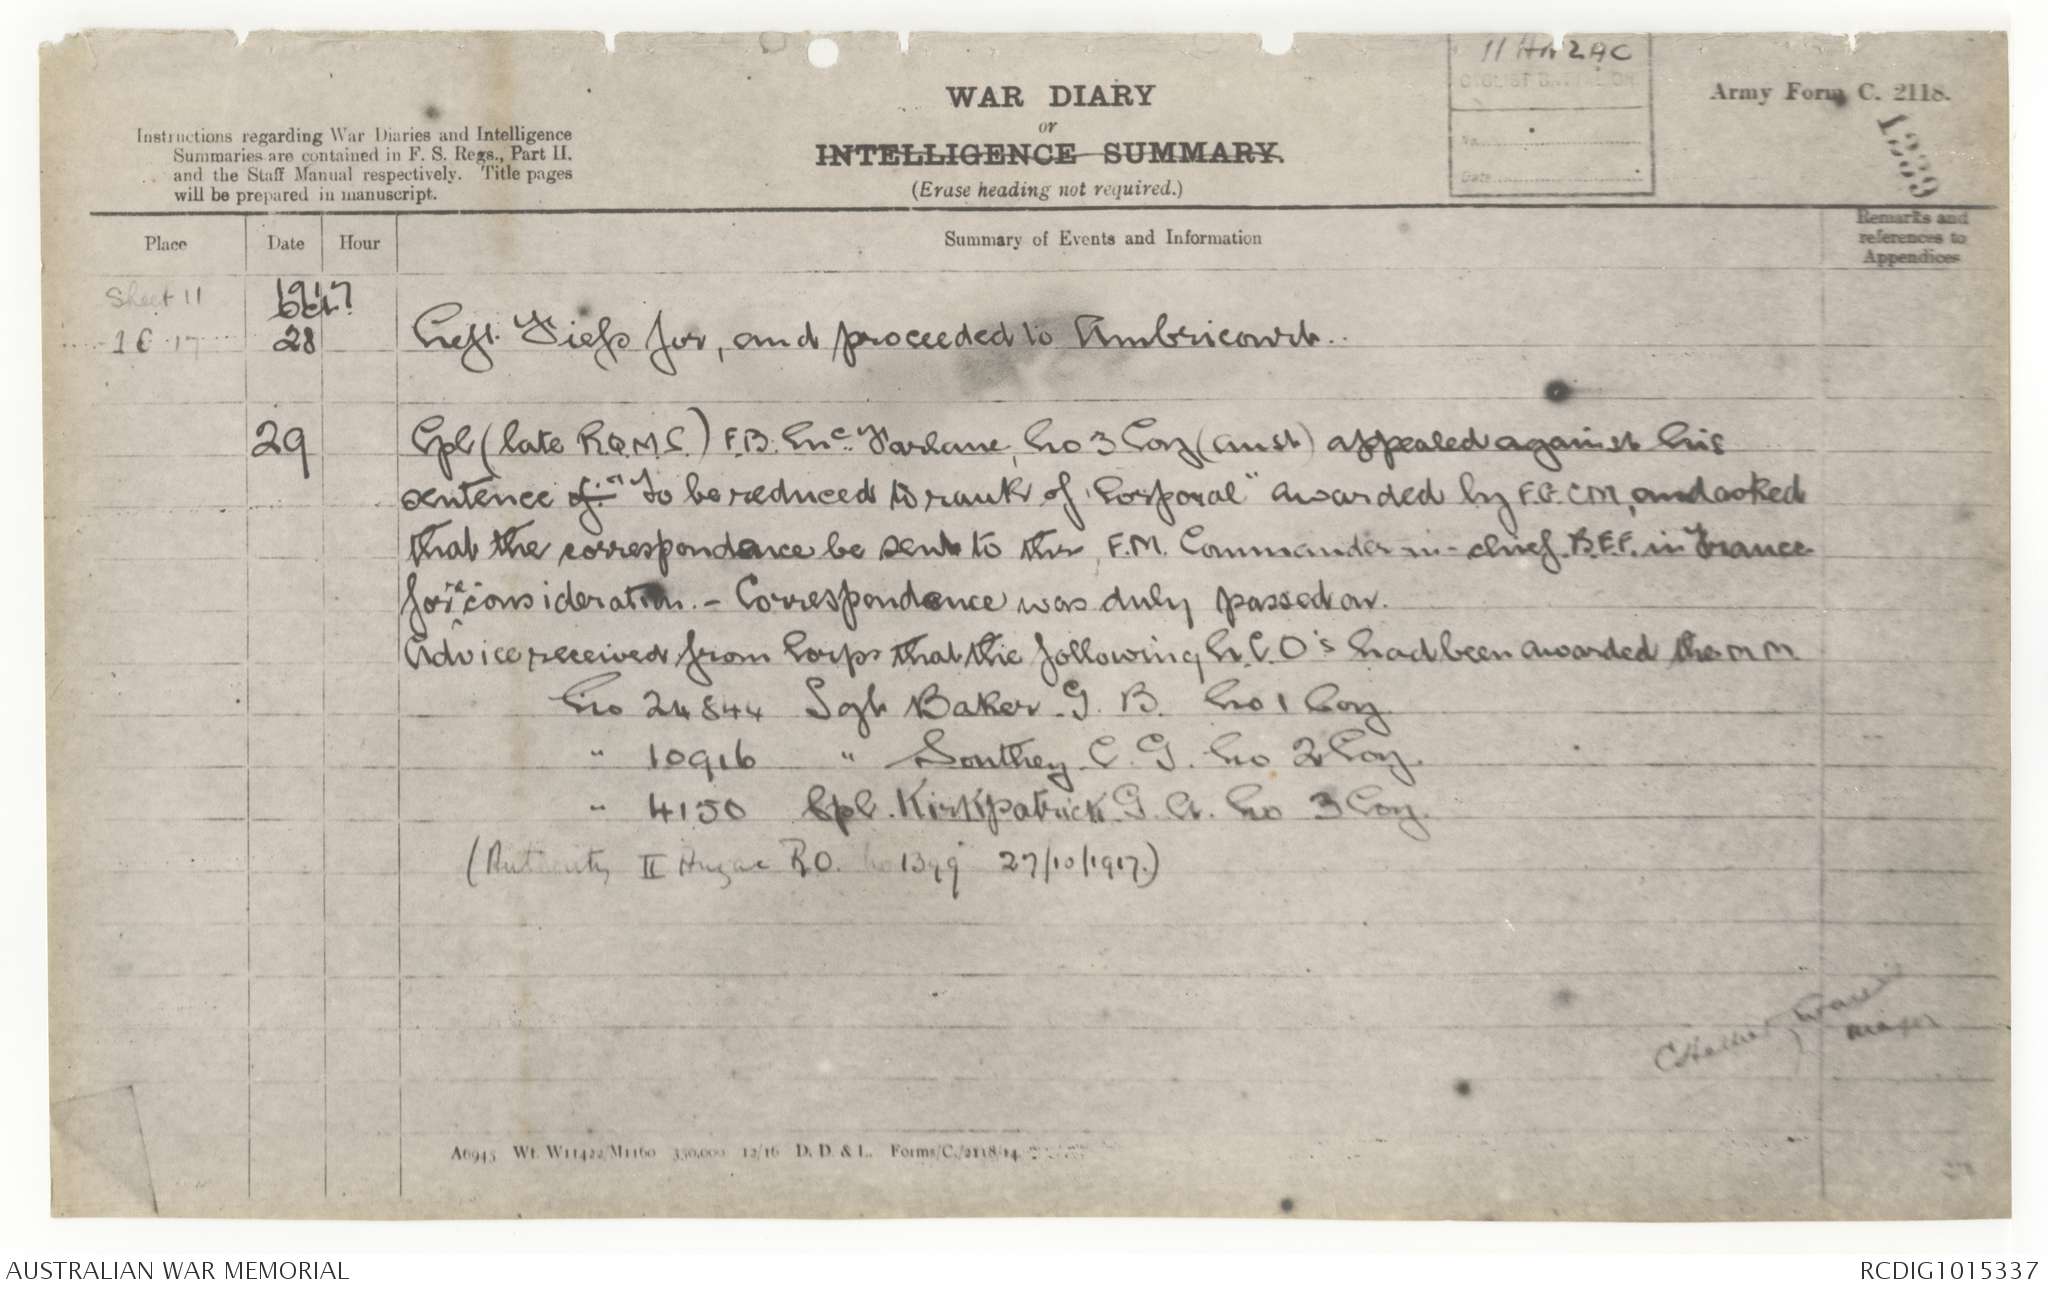 II ANZAC
CYCLIST BATTALION
No.
Date
WAR DIARY
or
INTELLIGENCE SUMMARY.
(Erase heading not required.)
Army Form C. 2118.
1339
Instructions regarding War Diaries and Intelligence
Summaries are contained in F. S. Regs., Part II.
and the Staff Manual respectively. Title pages
will be prepared in manuscript.
Place Date Hour Summary of Events and Information Remarks and references to Appendices
Sheet 11 1917 Oct.
28 Left Fiefs for, and proceeded to Ambricourt.
29 Cpl (late R.Q.M.S.) F.B. McFarlane, No 3 Coy (Aust) appealed against his
sentence of "To be reduced to rank of Corporal" awarded by F.G.C.M, and asked
that the correspondence be sent to the F.M. Commander-in-chief B.E.F. in France
for re consideration. - Correspondence was duly passed on.
Advice received from Corps that the following N.C.O's had been awarded the M M.
No 24844 Sgt Baker G. B. No 1 Coy
" 10916 " Southey C. G. No 2 Coy.
" 4150 Cpl. Kirkpatrick G. A. No 3 Coy.
(Authority II Anzac R.O. No 27/10/1917.)
Major
A6945 Wt. W11422/M1160 350,000 12/16 D. D. & L. Forms/C./2118/14.
AUSTRALIAN WAR MEMORIAL RCDIG1015337